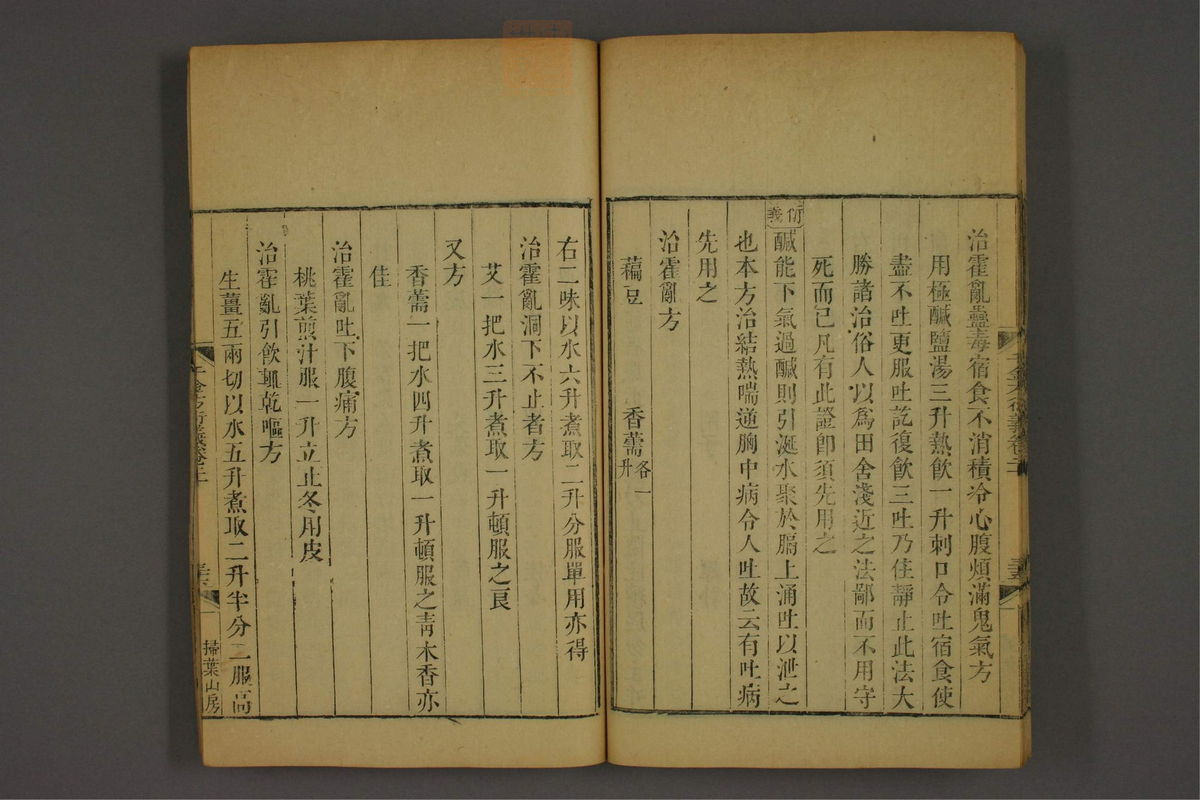 治霍亂蠱毒宿食不消積冷心腹煩滿鬼氣方
用極鹹鹽湯三升熱飲一升刺口令吐宿食使
盡不吐更服吐訖復飲三吐乃住靜止此法大
勝諸治俗人以為田舍淺近之法鄙而不用守
死而已凡有此證卽須先用之
衍義 鹹能下氣過鹹則引涎水聚於膈上涌吐以泄之
也本方治結熱喘逆胸中病令人吐故云有吐病
先用之
治霍亂方
藊豆 香薷各一升
右二味以水六升煮取二升分服單用亦得
治霍亂洞下不止者方
艾一把水三升煮取一升頓服之良
又方
香薷一把水四升煮取一升頓服之靑木香亦
佳
治霍亂吐下腹痛方
桃葉煎汁服一升立止冬用皮
治霍亂引飮輒乾嘔方
生薑五兩切以水五升煮取二升半分二服高
千金方衍義卷二十
掃葉山房